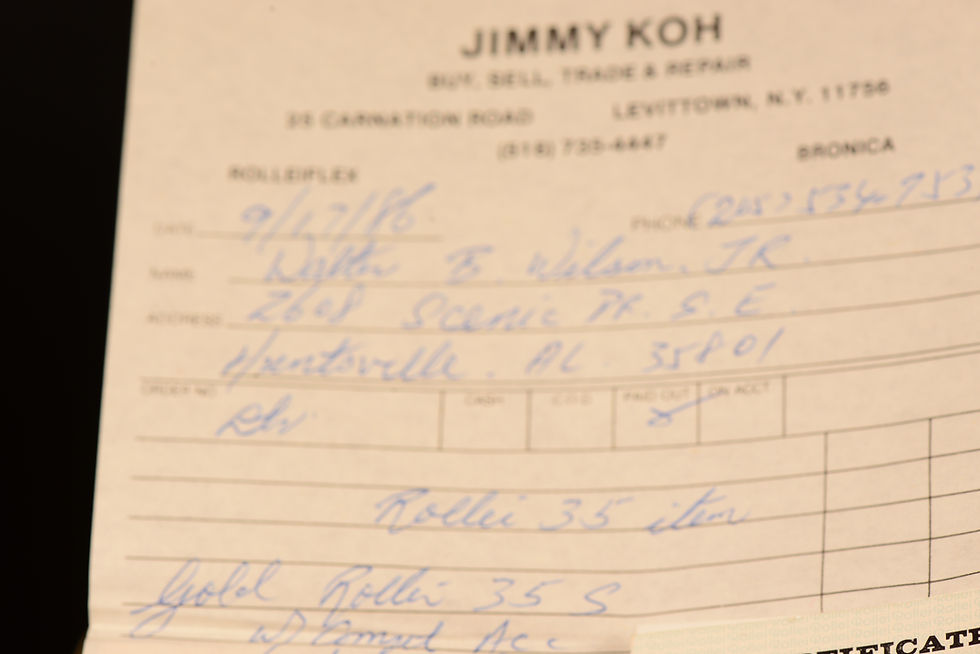 JIMMY KOH
BUY, SELL, TRADE & REPAIR
25 CARNATION ROAD LEVITTOWN, N.Y. 11756
(516) 735-4447
ROLLEIFLEX BRONICA
DATE 9/17/86 PHONE (205) 534-753
NAME Walter E. Wilson, JR.
ADDRESS 2608 Scenic Dr. S.E.
Huntsville, AL 35801
ORDER NO. CASH C.O.D. PAID OUT ON ACCT
Rollei 35 item
Gold Rollei 35 S
w/ Acc
TIFICATE